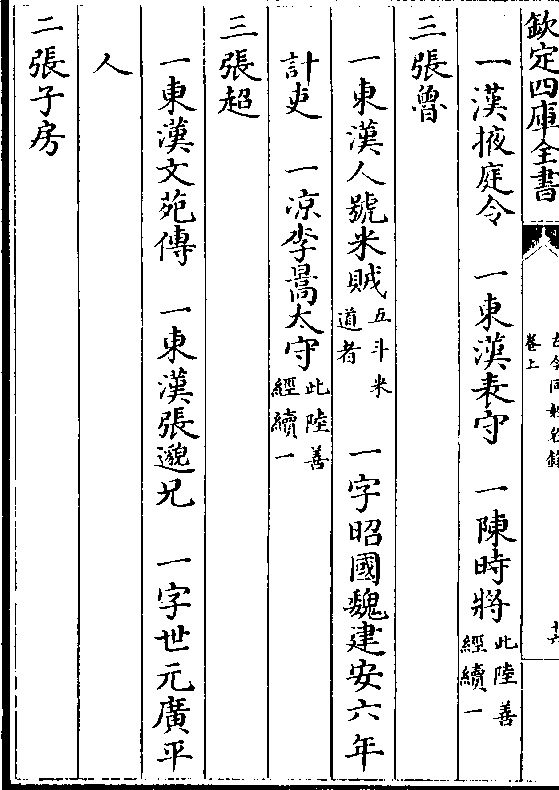 欽定四庫全書
卷上
一漢掖庭令　一東漢表守　一陳時將此陸善經續一
三張魯
一東漢人號米賊五斗米道者　一字昭國魏建安六年
計吏　一凉李暠太守此陸善經續一
三張超
一東漢文苑傳　一東漢張邈兄　一字世元廣平
人
二張子房